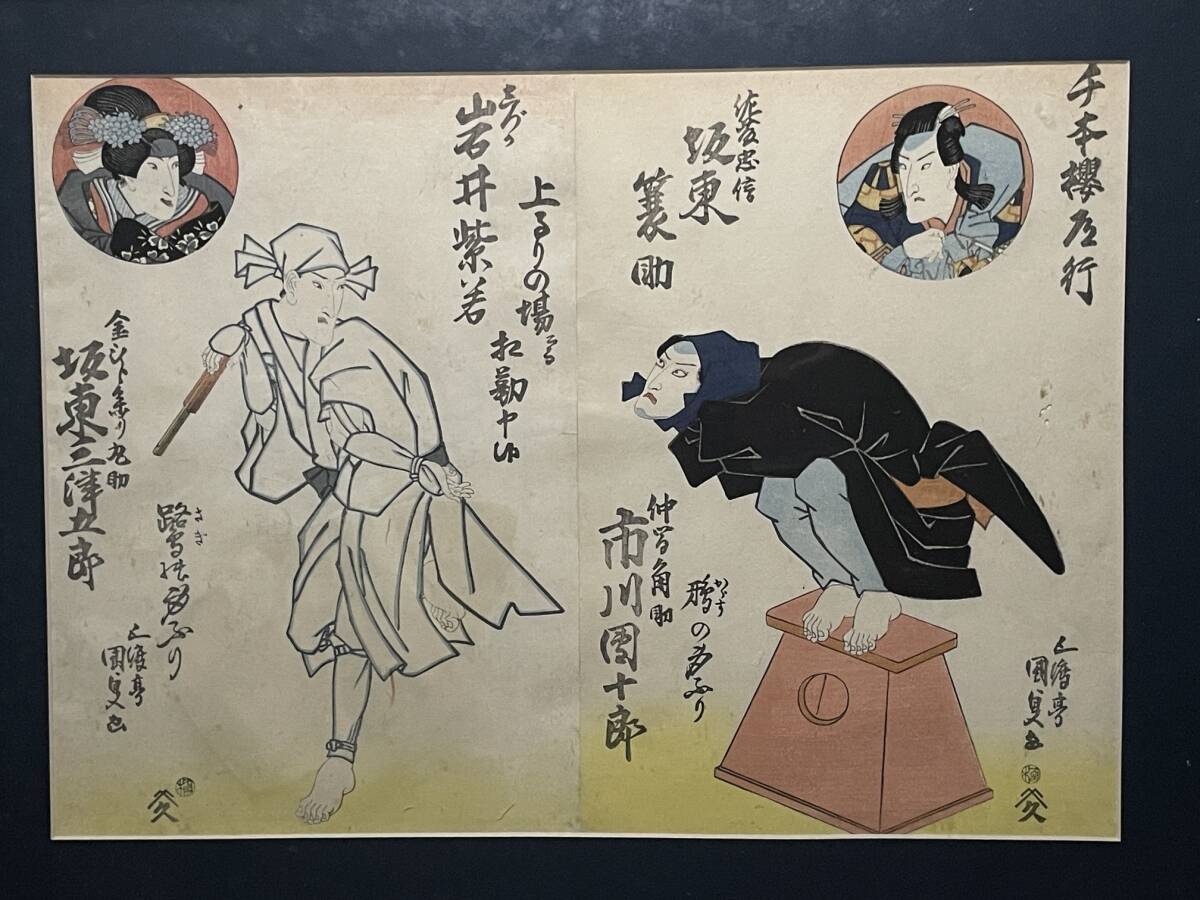 千本櫻道行
佐藤忠信
坂東
簑助
仲間角助
市川團十郎
鴉の身ぶり
からす
五渡亭
國貞画
しづか
岩井紫若
上るりの場ニて
相勤申候
金ひら参り丸助
坂東三津五郎
鷺の身ぶり
さぎ
五渡亭
國貞画
久
久